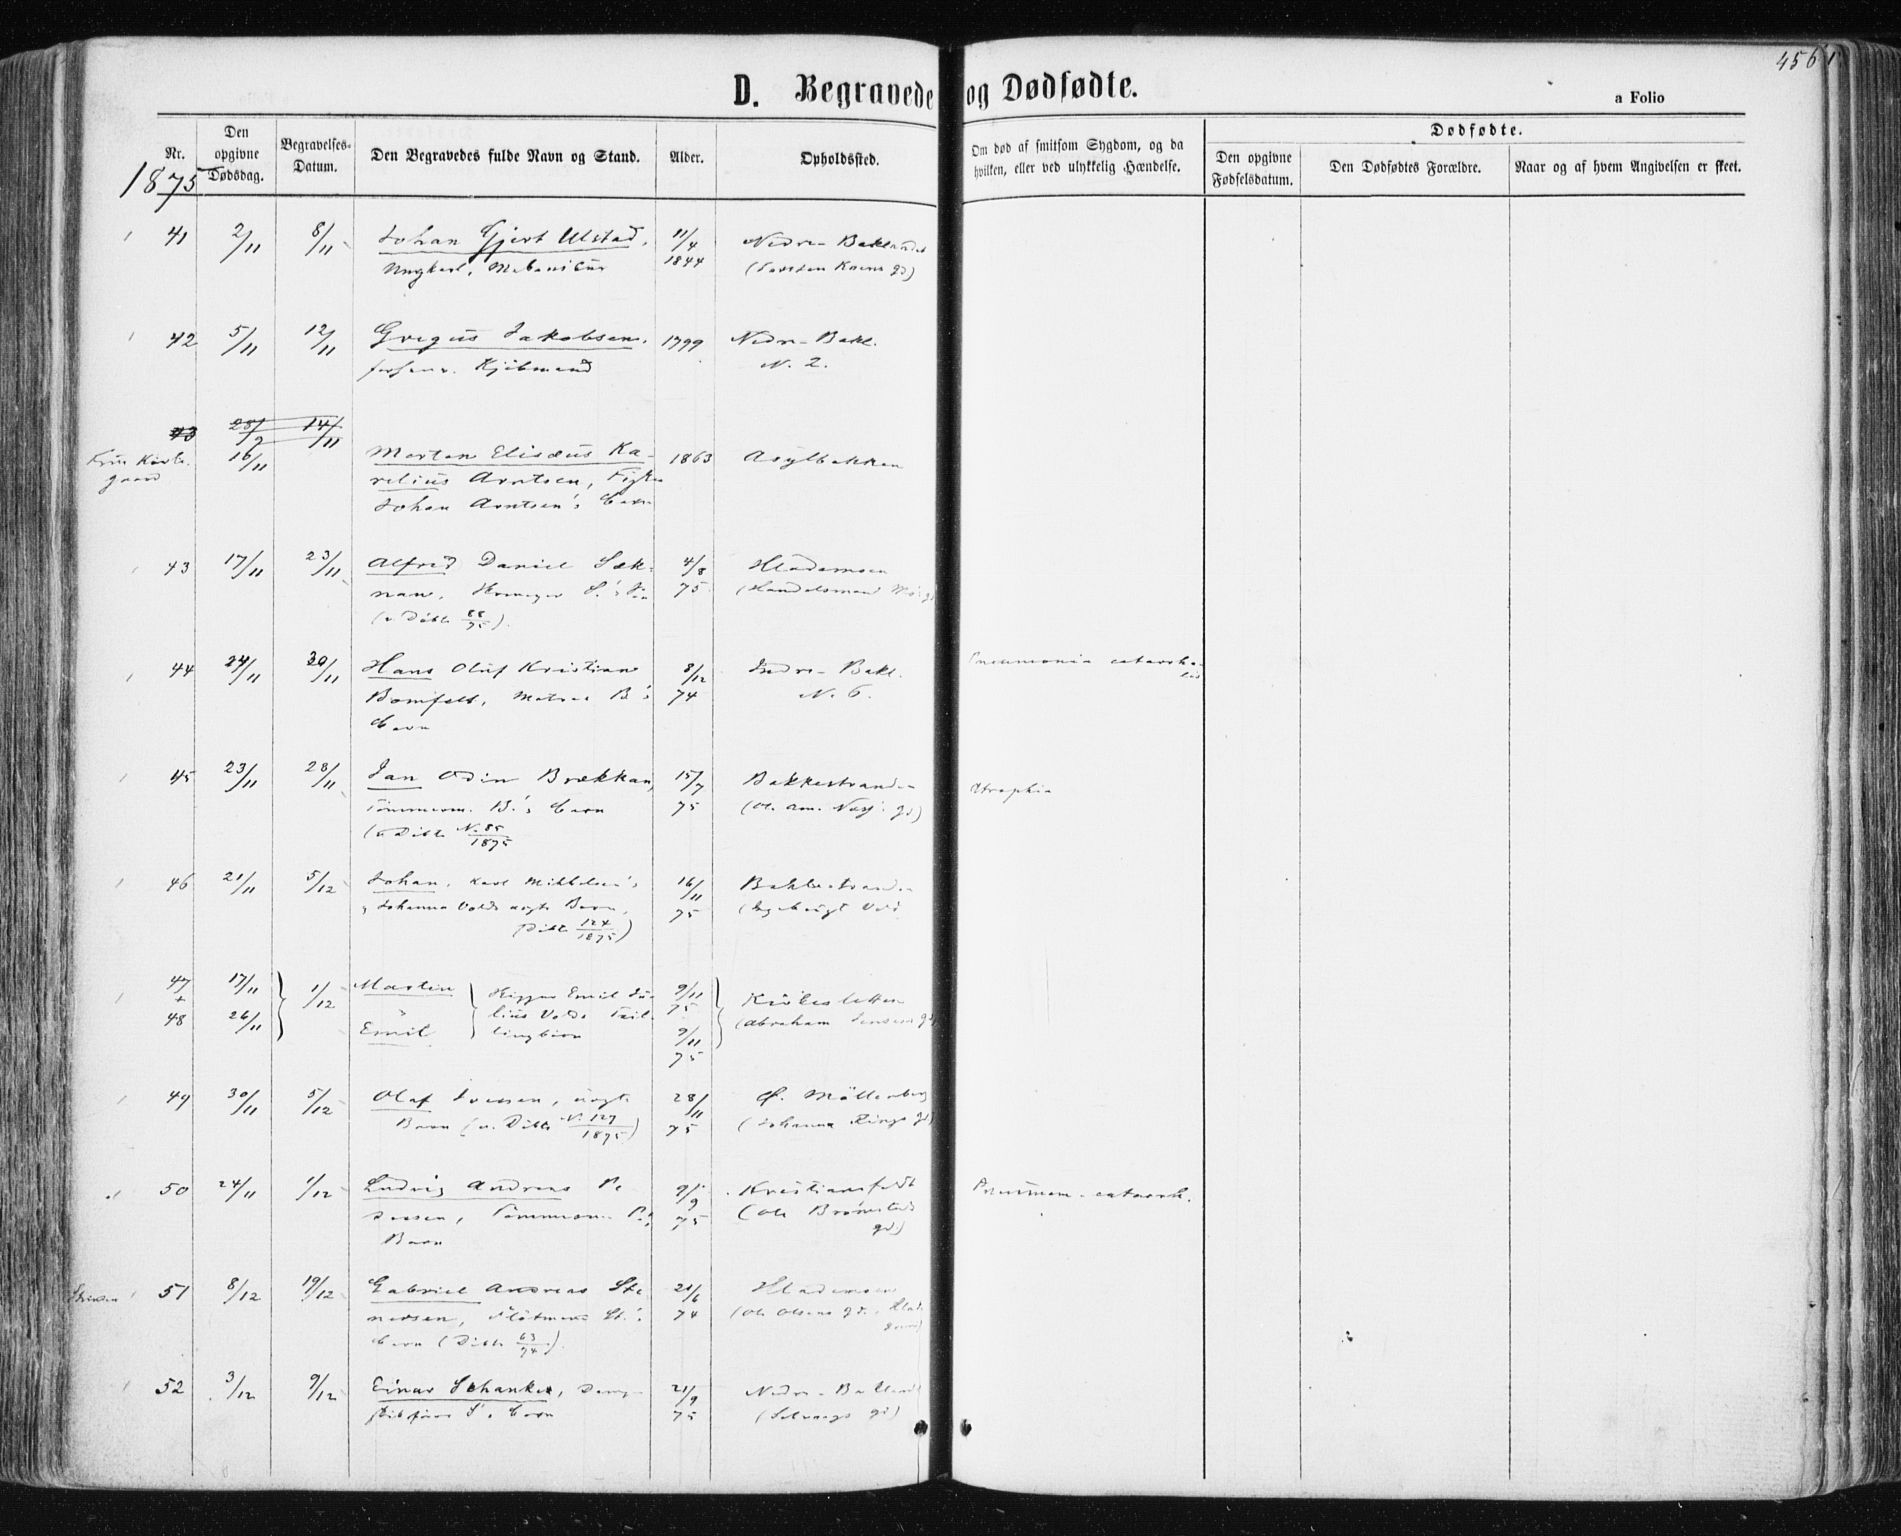 456
D. Begravede og Dødfødte.
a Folio
Nr.
Den opgivne Dødsdag.
Begravelses-Datum.
Den Begravedes fulde Navn og Stand.
Alder.
Opholdssted.
Om død af smitsom Sygdom, og da hvilken, eller ved ulykkelig Hændelse.
Dødfødte.
Den opgivne Fødselsdatum.
Den Dødfødtes Forældre.
Naar og af hvem Angivelsen er skeet.
1875
41 2/11 8/11 Johan Gjert Ulstad, 11/4 1844 Nedre-Baklandet
Ungkarl, Mekanikus
42 5/11 12/11 Gregus Jakobsen, 1799 Nedre-Bakl.
Kjøbmand N. 2.
43 28/9 14/11
16/11 Morten Elisæus Ka- 1863 Asylbakken
relius Arntsen,
Johan Arntsen's Barn
43 17/11 23/11 Alfred Daniel Sæk- 4/8 75 Hladamoen
nan, (Handelsmand
(v. Døbte 88/75).
44 24/11 30/11 Hans Oluf Kristian 8/12 74 Nedre-Bakl. Pneumonia catarrha-
Bomfelt, Matros B's N. 6. lis
Barn
45 23/11 28/11 Jan Odin Brækkan, 15/7 75 Bakkestranden Atrophia
Tømmerm. B.'s Barn
(v. Døbte N. 85/1875
46 21/11 5/12 Johan, Karl Mikkelsen's 16/11 75 Bakkestranden
Johanna Volds uægte Barn,
(Døbte 124/1875)
47 17/11 1/12 Martin 9/11 75 Kirkesletten
+ (Abraham Jensens gd)
48 26/11 Emil Emil Ju-lius Volds Tvil-lingbørn 9/11 75
49 30/11 5/12 Olaf Iversen, uægte 28/11 75 Ø. Møllenberg
Barn (v. Døbte N. 127/1875) (Johanna Rings gd)
50 24/11 1/12 Ludvig Andreas Pe- 9/9 75 Kristiansfeldt Pneumon. catarrh.
dersen, Tømmerm. P.'s (Ole Brønstads
Barn gd.)
51 8/12 19/12 Gabriel Andreas Ste- 21/6 74 Hladamoen
nersen, St.'s (Ole Olsens gd.,
Barn (Døbte 63/74).
52 3/12 9/12 Einar Schanke, 21/9 75 Nedre-Bakland
S's Barn